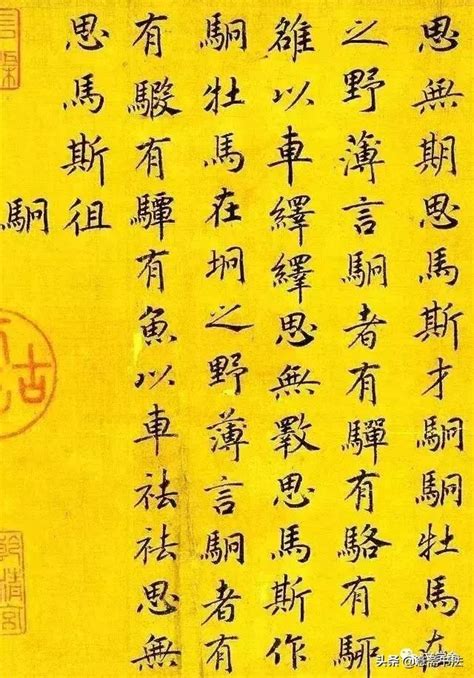 思無期思馬斯才駉駉牡馬在
之野薄言駉者有驒有駱有駵
雒以車繹繹思無斁思馬斯作
駉牡馬在坰之野薄言駉者有
有騢有驔有魚以車祛祛思無
思馬斯徂
駉
古
头条